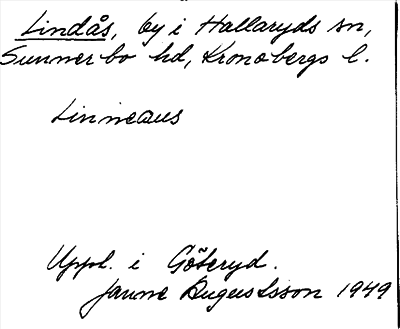 Lindås, by i Hallaryds sn,
Sunnerbo hd, Kronobergs l.
Linneaus
Uppl. i Göteryd.
Janne Augustsson 1949